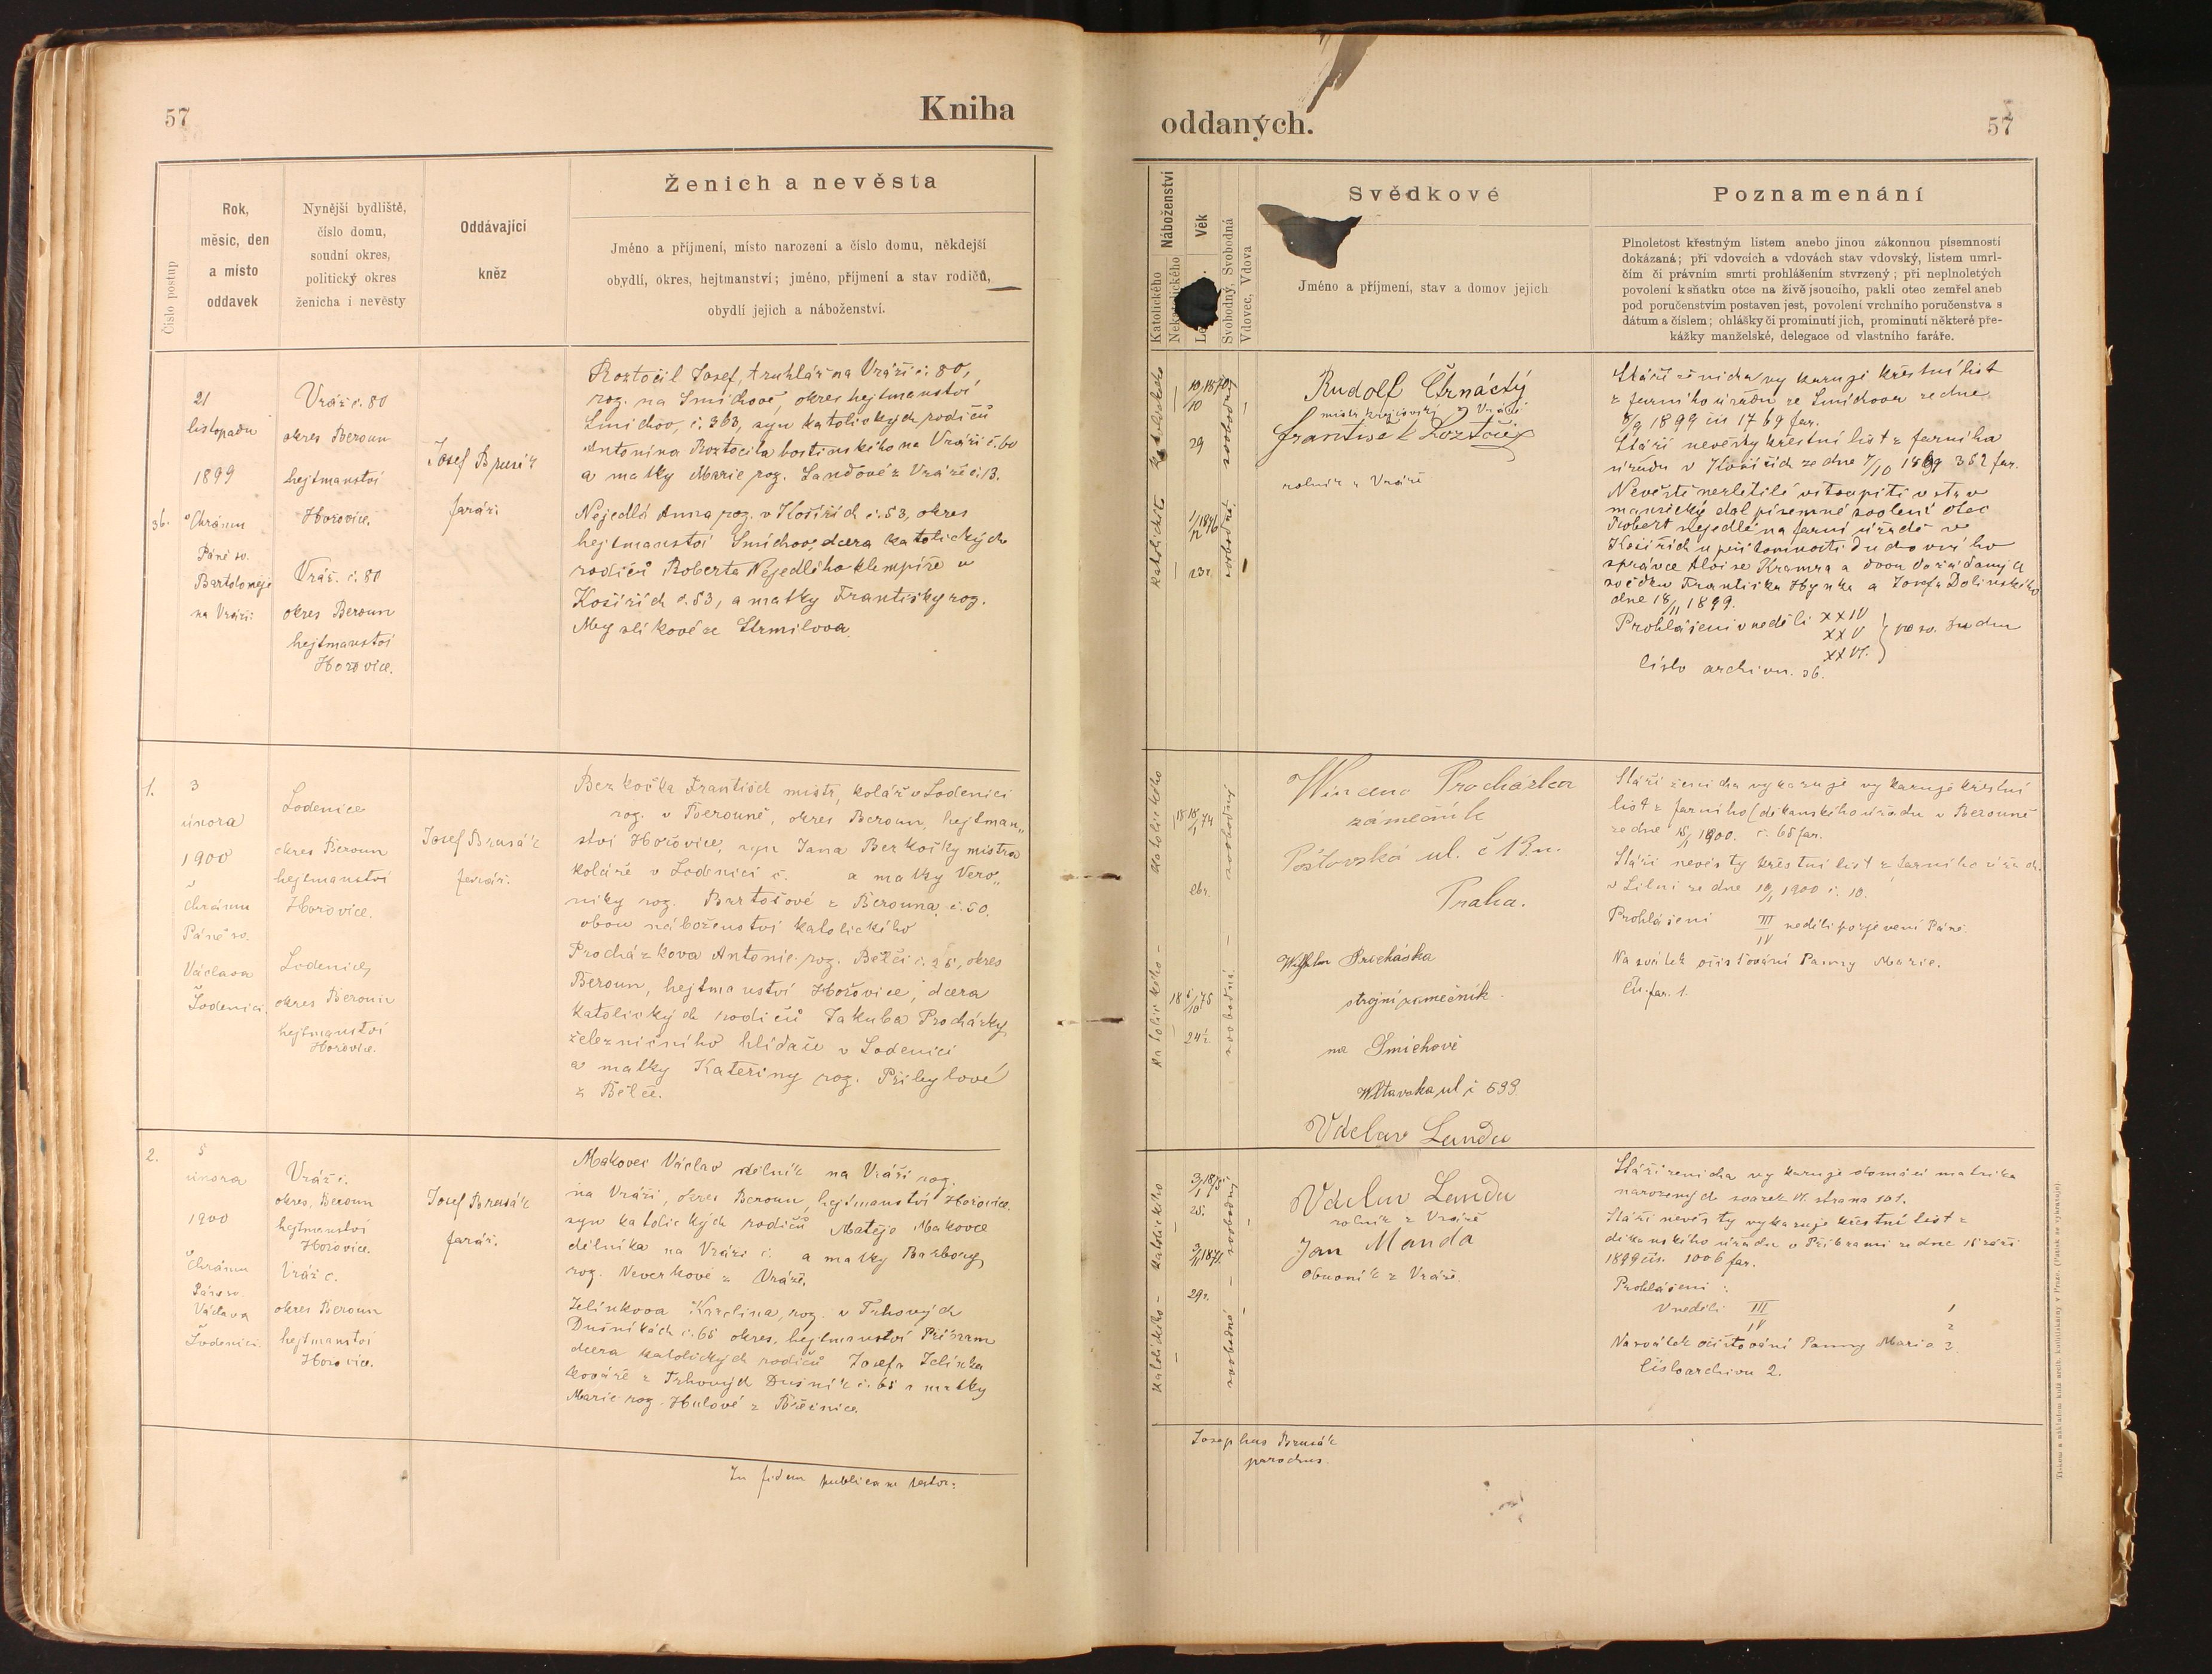 57
Kniha
Číslo postup
Rok,
měsíc, den
a místo
oddavek
Nynější bydliště,
číslo domu,
soudní okres,
politický okres
ženicha i nevěsty
Oddávající
kněz
Ženich a nevěsta
Jméno a příjmení, místo narození a číslo domu, někdejší
obydlí, okres, hejtmanství; jméno, příjmení a stav rodičů,
obydlí jejich a náboženství.
36.
21
listopadu
1899
v Chrámu
Páně sv.
Bartoloměje
na Vráži.
Vráž č. 80
okres Beroun
hejtmanství
Hořovice.
Vráž. č. 80
okres Beroun
hejtmanství
Hořovice.
Josef Brusák
farář.
Roztočil Josef, truhlář na Vráži č. 80,
roz. na Smíchově, okres hejtmanství
Smíchov, č. 363, syn katolických rodičů
Antonína Roztočila hostinského na Vráži č. 60
a matky Marie roz. Landové z Vráže č. 13.
Nejedlá Anna roz. v Košířích č. 53, okres
hejtmanství Smíchov, dcera katolických
rodičů Roberta Nejedlého klempíře v
Košířích č. 53, a matky Františky roz.
Myslíkové ze Strmilova.
1.
3
února
1900
v
chrámu
Páně sv.
Václava
Loděnici.
Loděnice
okres Beroun
hejtmanství
Hořovice.
Loděnice
okres Beroun
hejtmanství
Hořovice.
Josef Brusák
farář.
Bezkočka František mistr, kolář v Loděnici
roz. v Berouně, okres Beroun, hejtman„
ství Hořovice, syn Jana Bezkočky mistra
koláře v Loděnici č. a matky Vero„
niky roz. Bartošové z Berouna č. 50.
obou náboženství katolického
Procházkova Antonie roz. Bělči č. 25, okres
Beroun, hejtmanství Hořovice, dcera
katolických rodičů Jakuba Procházky
železničního hlídače v Loděnici
a matky Kateřiny roz. Přibylové
z Bělče.
2.
5
února
1900
v
Chrámu
Páně sv
Václava
Loděnici.
Vráž č.
okres, Beroun
hejtmanství
Hořovice.
Vráž č.
okres Beroun
hejtmanství
Hořovice.
Josef Brusák
farář.
Makovec Václav dělník na Vráži roz.
na Vráži, okres Beroun, hejtmanství Hořovice.
syn katolických rodičů Matěje Makovce
dělníka na Vráži č. a matky Barbory
roz. Neverkové z Vráže.
Jelínkova Karolina, roz. v Trhových
Dušníkách č. 65 okres, hejtmanství Příbram
dcera katolických rodičů Josefa Jelínka
kováře z Trhových Dušník č. 65 a matky
Marie roz. Hulové z
In fidem publicam testor:
oddaných.
57
Náboženství
Katolického
Věk
Svobodný, Svobodná
Vdovec, Vdova
Svědkové
Jméno a příjmení, stav a domov jejich
Poznamenání
Plnoletost křestným listem anebo jinou zákonnou písemností
dokázaná; při vdovcích a vdovách stav vdovský, listem umrl-
čím či právním smrti prohlášením stvrzený; při neplnoletých
povolení k sňatku otce na živě jsoucího, pakli otec zemřel aneb
pod poručenstvím postaven jest, povolení vrchního poručenstva s
dátum a číslem; ohlášky či prominutí jich, prominutí některé pře-
kážky manželské, delegace od vlastního faráře.
katolického
10/10 1870
29
svobodný
katolického
1876
23r.
svobodná.
Rudolf Čtrnáctý
mistr krejčovský z Vráže
František Roztočil
rolník z Vráže
Stáří ženicha vykazuje křestní list
z farního úřadu ze Smíchova ze dne
8/9 1899 čís 1769 far.
Stáří nevěsty křestní list z farního
úřadu v Košířích ze dne 7/10 1899 382 far.
Nevěstě nezletilé vstoupiti v stav
manželský dal písemné svolení otec
Robert Nejedlé na farní úřadě v
Košířích u přítomnosti duchovního
správce Aloise Kramra a dvou dožádaných
svědků Františka Hynka a Josefa Dolinského
dne 18/11 1899.
Prohlášení v neděli XXIV
XXV
XXVI.
po sv. Duchu
číslo archivu. 36.
katolického
svobodný
katolického
24½
svobodná
Wincenc Procházka
zámečník
Poštovská ul. č 13n.
Praha.
Wilhelm Procháska
strojní zámečník
na Smíchově
Wltavska ul č 599.
Václav Landa
Stáří ženicha vykazuje vykazuje křestní
list z farního (děkanského úřadu v Berouně
ze dne 15/1 1900. č. 65 far.
Stáří nevěsty křestní list z farního úřadu
v Litni ze dne 10/1 1900 č. 10.
Prohlášení III
IV neděli po zjevení Páně.
Na svátek očisťování Panny Marie.
Čís. far. 1.
katolického
25.
svobodný
katolického
29r.
svobodná
Václav Landa
rolník z Vráže
Jan Manda
obuvník z Vráže.
Stáří ženicha vykazuje domácí matrika
narozených svazek VI. strana 101.
Stáří nevěsty vykazuje křestní list z
děkanského úřadu v Příbrami ze dne 15 září
1899 čís. 1006 far.
Prohlášení:
V neděli III 1
IV 2
Na svátek očisťování Panny Marie 3.
Číslo archivu 2.
Josephus Brusák
parochus.